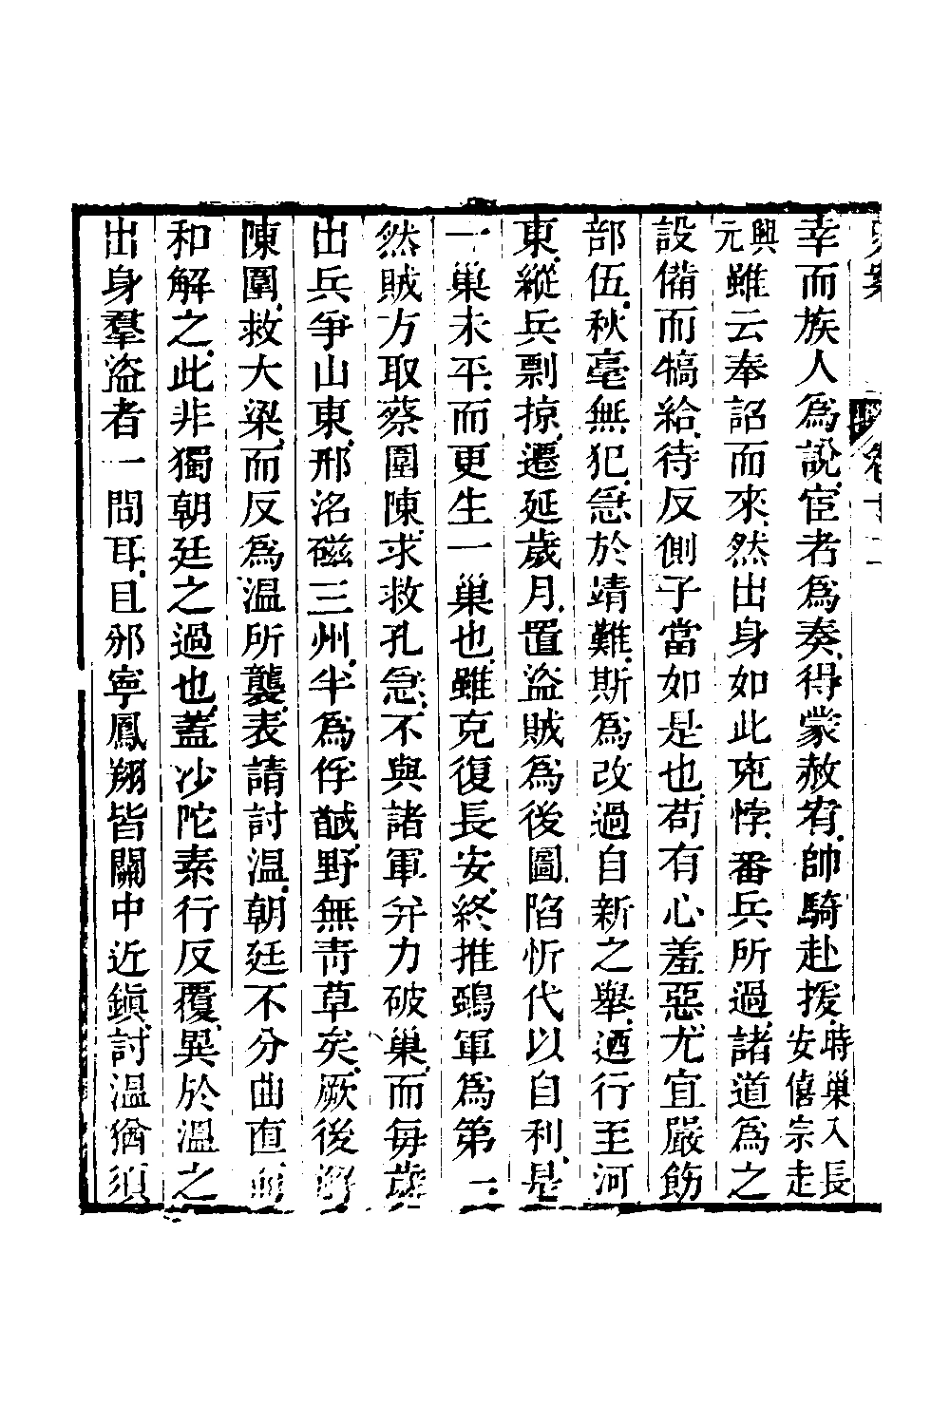 史案 卷十二
幸而族人爲說宦者爲奏得蒙赦宥帥騎赴援時巢入長安僖宗走
興元雖云奉詔而來然出身如此克悖番兵所過諸道爲之
設備而犒給待反側子當如是也苟有心羞惡尤宜嚴飭
部伍秋毫無犯急於靖難斯爲改過自新之舉迺行至河
東縱兵剽掠遷延歲月置盜賊爲後圖陷忻代以自利是
一巢未平而更生一巢也雖克復長安終推鵶軍爲第一
然賊方取蔡圍陳求救孔急不與諸軍并力破巢而每歲
出兵爭山東邢洺磁三州半爲俘馘野無青草矣厥後解
陳圍救大梁而反爲溫所襲表請討溫朝廷不分曲直而
和解之此非獨朝廷之過也蓋沙陀素行反覆異於溫之
出身羣盜者一間耳且邠寧鳳翔皆關中近鎮討溫猶須